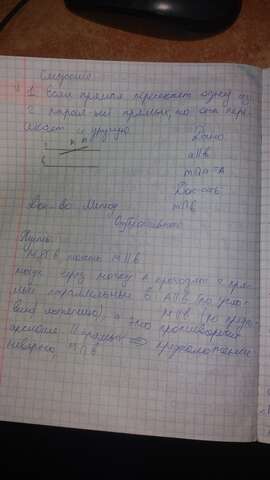 Следствие
1. Если прямая пересекает одну из
2 парал-ных прямых, то она пере
секает и другую
Дано
a∥b
m∩a=A
Док-ать
m∩b
Док-во Метод
От противного
Пусть
m∦b, тогда m∥b
тогда через точку A проходят 2 пря
мые параллельные b a∥b (по усло
вию) m∥b (по предпо
ложению), а это противоречит
аксиоме ∥ прямых ⇒ предположение
неверно m∩b